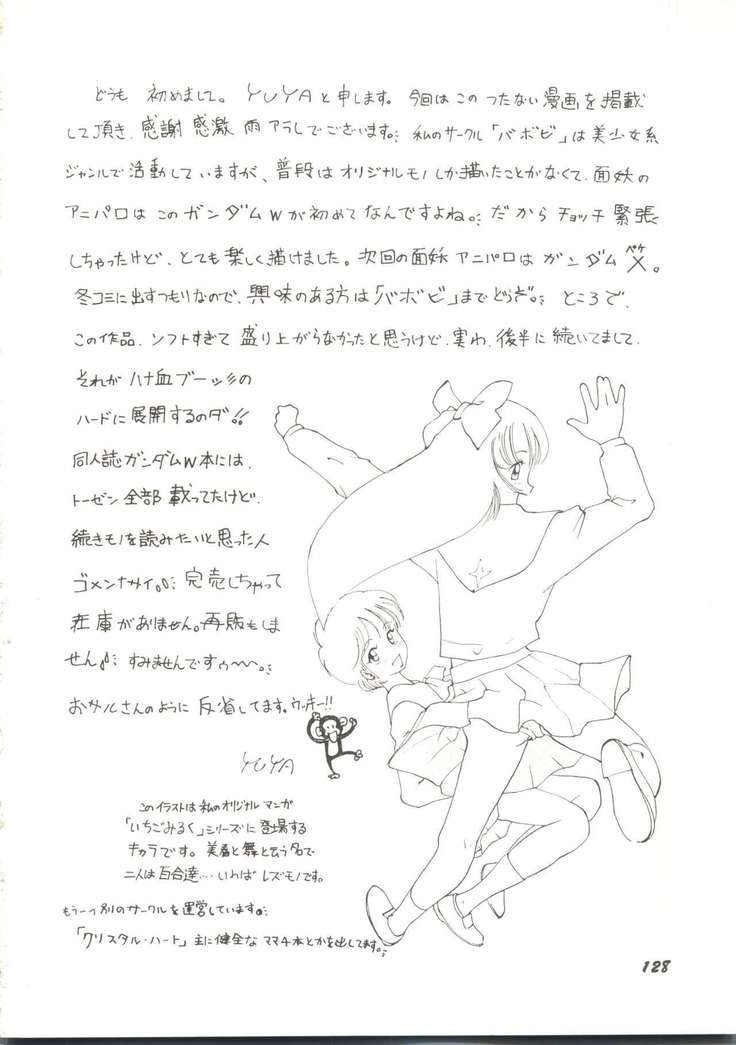 どうも 初めまして。YUYAと申します。今回はこの つたない漫画を掲載
して頂き、感謝 感激 雨 アラレでございます。私のサークル「バボビ」は美少女系
ジャンルで活動していますが、普段はオリジナルモノしか描いたことがなくて、面妖の
アニパロはこのガンダムWが初めてなんですよね。だから チョッチ 緊張
しちゃったけど、とても楽しく描けました。次回の面妖アニパロはガンダムX。
ペケ
冬コミに出すつもりなので、興味のある方は「バボビ」までどうぞ。ところで、
この作品、ソフトすぎて 盛り上がらなかったと思うけど、実わ、後半に続いてまして、
それが ハナ血ブーッ彡の
ハードに展開するのダ!!
同人誌ガンダムW本には、
トーゼン全部 載ってたけど、
続きモノを読みたいと思った人
ゴメンナサイ。完売しちゃって
在庫がありません。再販もしま
せん。すみませんですぅ〜〜。
おサルさんのように 反省してます。ウッキー!!
YUYA
このイラストは私のオリジナルマンガ
「いちごみるく」シリーズに登場する
キャラです。美香と舞と云う名で
二人は百合達‥‥いわば レズモノです。
もう一つ別のサークルを運営しています。
「クリスタル・ハート」主に健全な ママ4本とかを出してます。
128